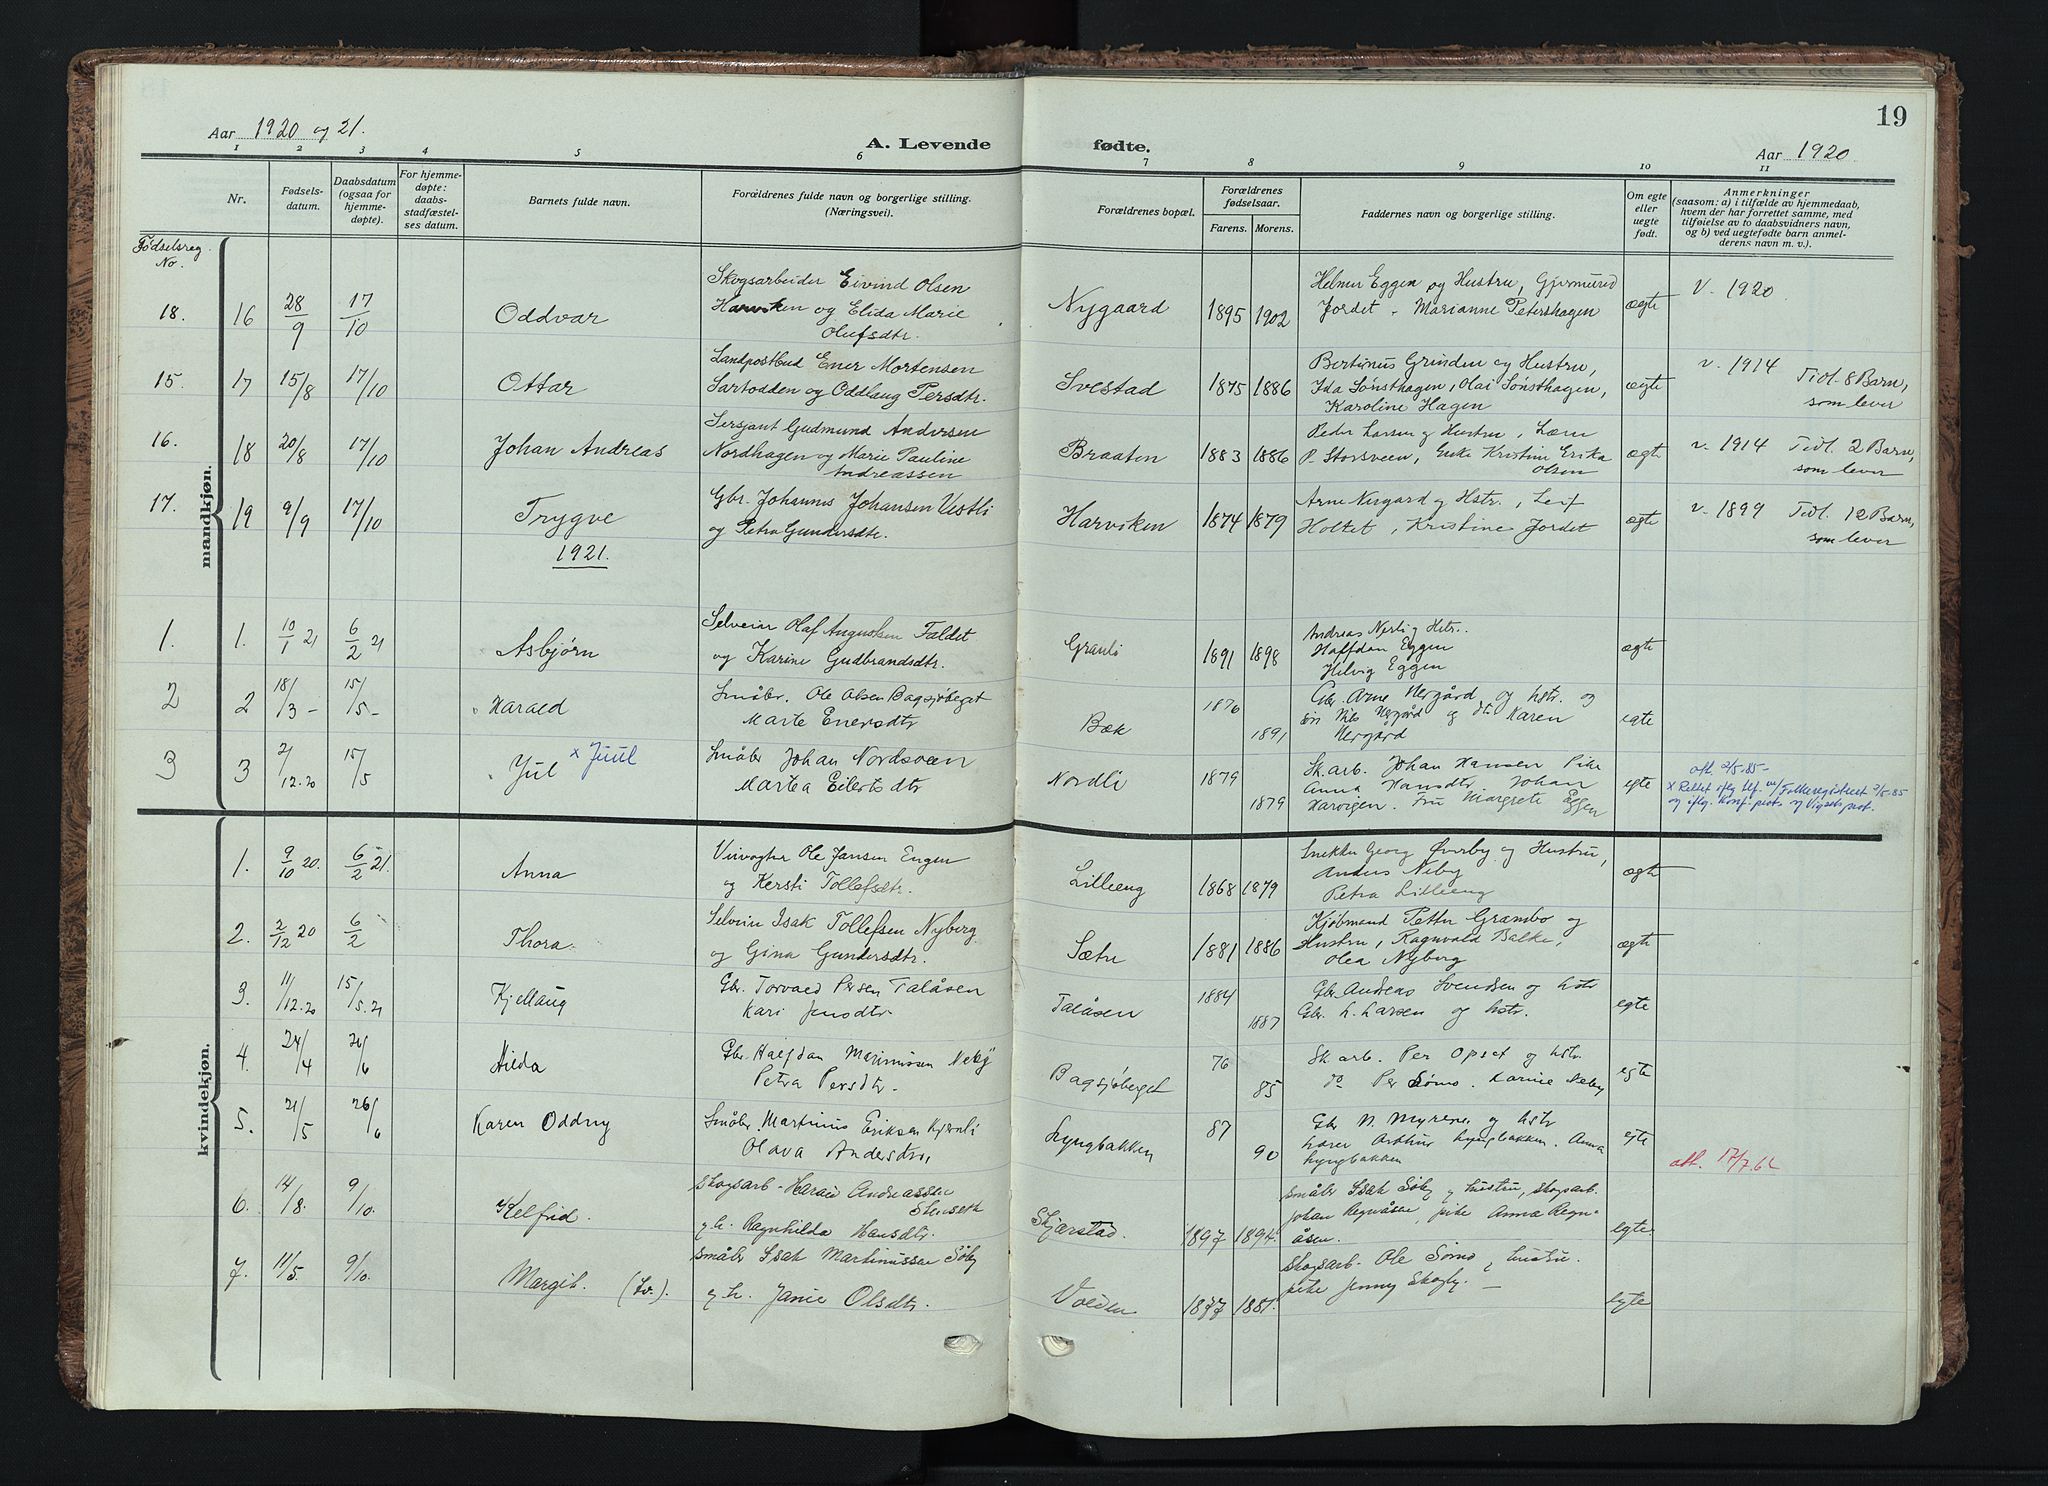 19
Aar 1920 og 21.
A. Levende fødte.
Aar 1920
1 2 3 4 5 6 7 8 9 10 11
Nr.
Fødsels-
datum.
Daabsdatum
(ogsaa for
hjemme-
døpte).
For hjemme-
døpte:
daabs-
stadfæstel-
ses datum.
Barnets fulde navn.
Forældrenes fulde navn og borgerlige stilling.
(Næringsvei).
Forældrenes bopæl.
Forældrenes
fødselsaar.
Farens. Morens.
Faddernes navn og borgerlige stilling.
Om egte
eller
uegte
født.
Anmerkninger
(saasom: a) i tilfælde av hjemmedaab,
hvem der har forrettet samme, med
tilføielse av to daabsvidners navn,
og b) ved uegtefødte barn anmel-
derens navn m. v.).
Fødselsreg
No.
mandkjøn.
18. 16 28/9 17/10 Oddvar
Skogsarbeider Eivind Olsen
Harviken og Elida Marie
Olufsdtr.
Nygaard 1895 1902
Helmer Eggen og Hustru, Gjermund
Jordet - Marianne Petershagen
ægte V. 1920
15. 17 15/8 17/10 Ottar
Landpostbud Ener Mortensen
Sartodden og Oddlaug Persdtr.
Svestad 1875 1886
Bertinus Grinden og Hustru,
Ida Sønsthagen, Olai Sønsthagen,
Karoline Hagen
ægte v. 1914 Tidl. 8 Barn,
som lever
16. 18 20/8 17/10 Johan Andreas
Sersjant Gudmund Andersen
Nordhagen og Marie Pauline
Andreassen
Braaten 1883 1886
Peder Larsen og Hustru, Lærer
P. Storsveen, Enke Kristine Erika
Olsen
ægte v. 1914 Tidl. 2 Barn,
som lever
17. 19 9/9 17/10 Trygve
Gbr. Johannes Johansen Vestli
og Petra Gundersdtr.
Harviken 1874 1879
Arne Nergard og Hstr., Leif
Holtet, Kristine Jordet
ægte v. 1899 Tidl. 12 Barn,
som lever
1921.
1. 1. 10/1 21 6/2 21 Asbjørn
Selveier Olaf Augustsen Faldet
og Karine Gudbrandsdtr.
Granli 1891 1898
Andreas Nerli og Hstr.
Halfdan Eggen
Hilvig Eggen
ægte
2 2 18/3 - 15/5 - Harald
Småbr. Ole Olsen Bagsjøberget
Marte Enersdtr
Bæk 1876 1891
Gbr. Arne Nergård og hstr. og
søn Nils Nergård og dtr. Karen
Nergård
egte
3 3 2/12.20 15/5 Jul x Juul
Småbr Johan Nordsveen
Martea Eilertsdtr
Nordli 1879 1879
Sk.arb. Johan Hansen Pike
Anna Hansdtr Johan
Harvigen. Fru Margrete Eggen
egte
att. 2/5-85-
x Rettet iflg tlf. m/Folkeregisteret 2/5-85
og iflg. Konf.prot. og Vigselsprot.
kvindekjøn.
1. 9/10 20. 6/2 21. Anna
Veivogter Ole Jansen Engen
og Kersti Tollefsdtr.
Lilleeng 1868 1879
Snekker Georg Øverby og Hustru,
Anders Neby
Petra Lilleeng
ægte
2. 2/12 20 6/2 Thora.
Selveier Isak Tollefsen Nyberg
og Gina Gundersdtr.
Sætre 1881 1886
Kjøbmand Petter Grambo og
Hustru, Ragnvald Balke,
Olea Nyberg
ægte
3. 11/12.20 15/5.21 Kjellaug
Gbr. Torvald Persen Talåsen
Kari Jensdtr.
Talåsen 1884 1887
Gbr. Andreas Svendsen og hstr
Gbr. L. Larsen og hstr.
egte
4. 24/4 26/6 Hilda
Gbr. Halfdan Marinussen Neby
Petra Persdtr.
Bagsjøberget 76 85
Sk.arb. Per Opset og hstr.
do Per Sømo. Karine Neby
egte
5. 21/5 26/6 Karen Oddny
Småbr. Martinus Eriksen Kjernli
Olava Andersdtr.
Lyngbakken 87 90
Gbr N. Myrene og hstr
Lærer Arthur Lyngbakken. Anna
Lyngbakken
egte
att. 17/7.62
6. 14/8. 9/10. Kelfrid.
Skogsarb. Harald Andreassen
Stenseth
og h. Ragnhilda Hansdtr.
Skjærstad. 1897 1894.
Småbr Isak Søby og hustru, skogsarb.
Johan Regnåsen, pike Anna Regn-
åsen.
egte.
7. 11/5. 9/10. Margit. (Lv.).
Småbr Isak Martinussen Søby
og h. Janie Olsdtr.
Volden 1877 1881.
Skogsarb. Ole Sømo og hustru.
pike Jenny Skogly. —
egte